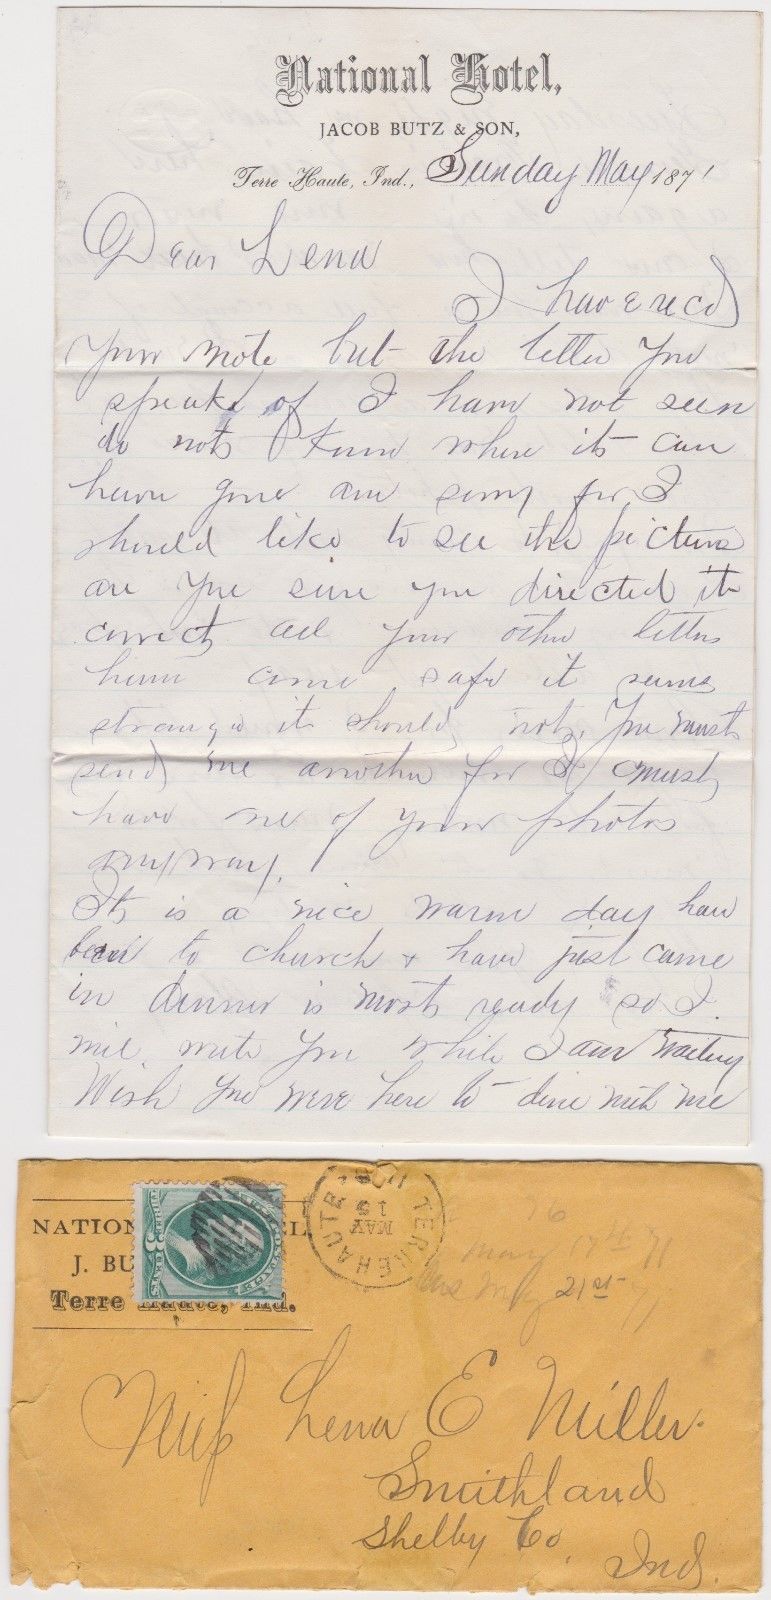 National Hotel,
JACOB BUTZ & SON,
Terre Haute, Ind., Sunday May 1871
Dear Lena
I have recd
your note but the letter you
speak of I have not seen
do not know where it can
have gone am sorry for I
should like to see the picture
are you sure you directed it
correct all your other letters
have come safe it seems
strange it should not. You must
send me another for I must
have one of your photos
anyway.
Its is a nice warm day have
been to church & have just came
in dinner is most ready so I
will write you while I am waiting
Wish you were here to dine with me
NATIONAL HOTEL
J. BU
Terre Haute, Ind.
TERRE HAUTE
MAY
15
76
May 17th 71
Ans May 21st 71
Miss Lena E Miller.
Smithland
Shelby Co
Ind.